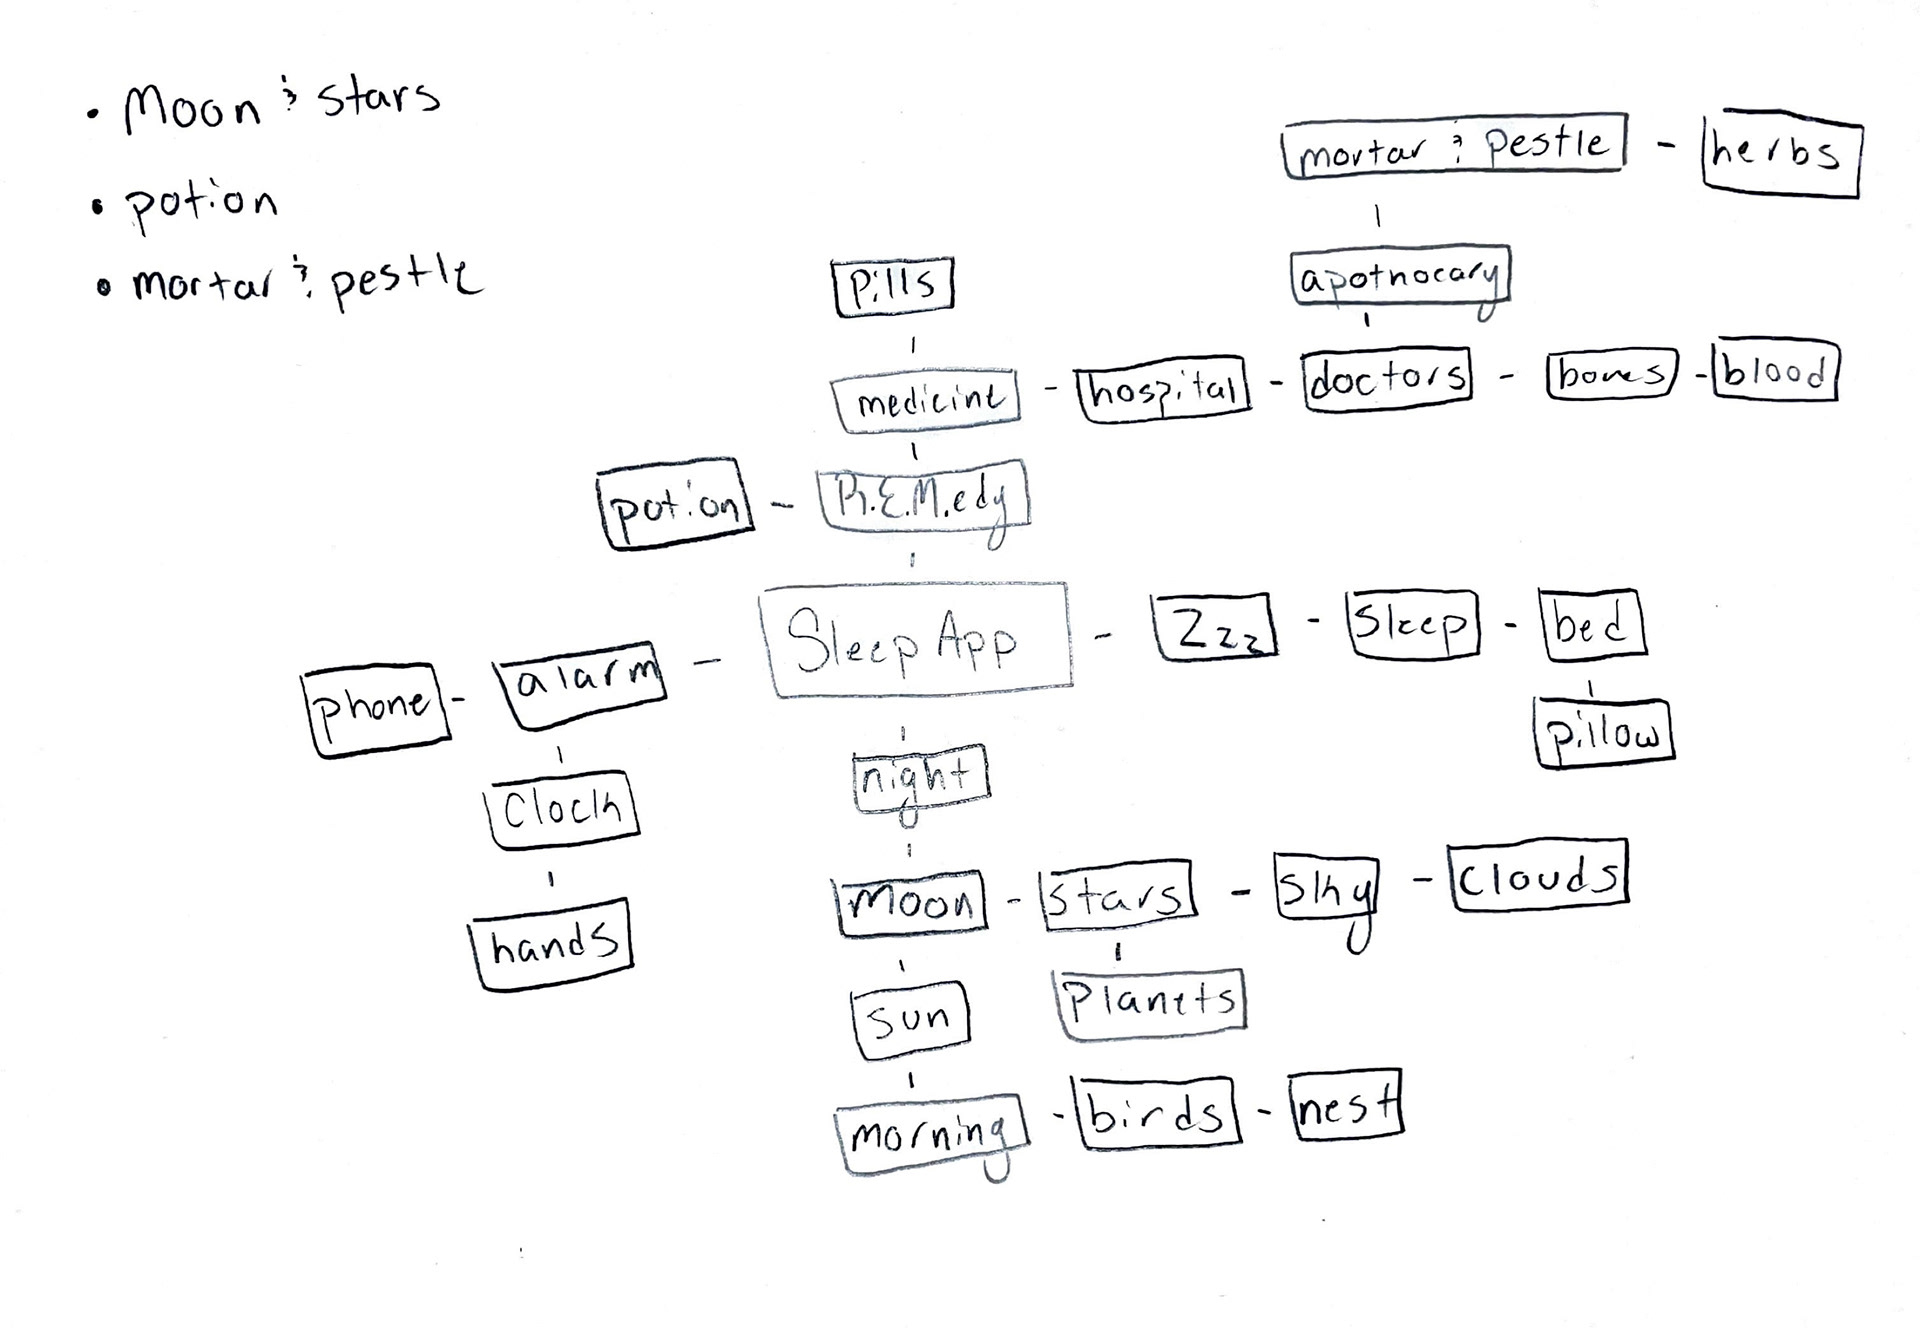 • Moon & stars
• potion
• mortar & pestle
mortar & pestle - herbs
apothocary
Pills
medicine - hospital - doctors - bones - blood
potion - R.E.M.edy
Sleep App - Zzz - Sleep - bed
phone - alarm -
pillow
night
Clock
moon - stars - sky - clouds
hands
sun
Planets
morning - birds - nest